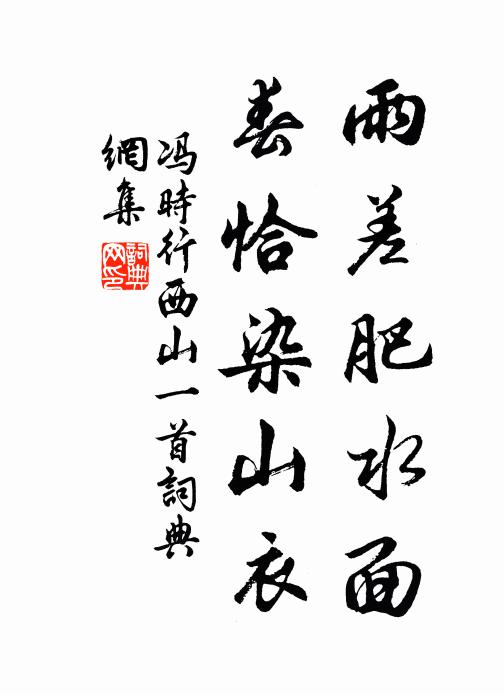 雨差肥水面
春恰染山衣
冯時行西山一首詞典
網集
詞典网印